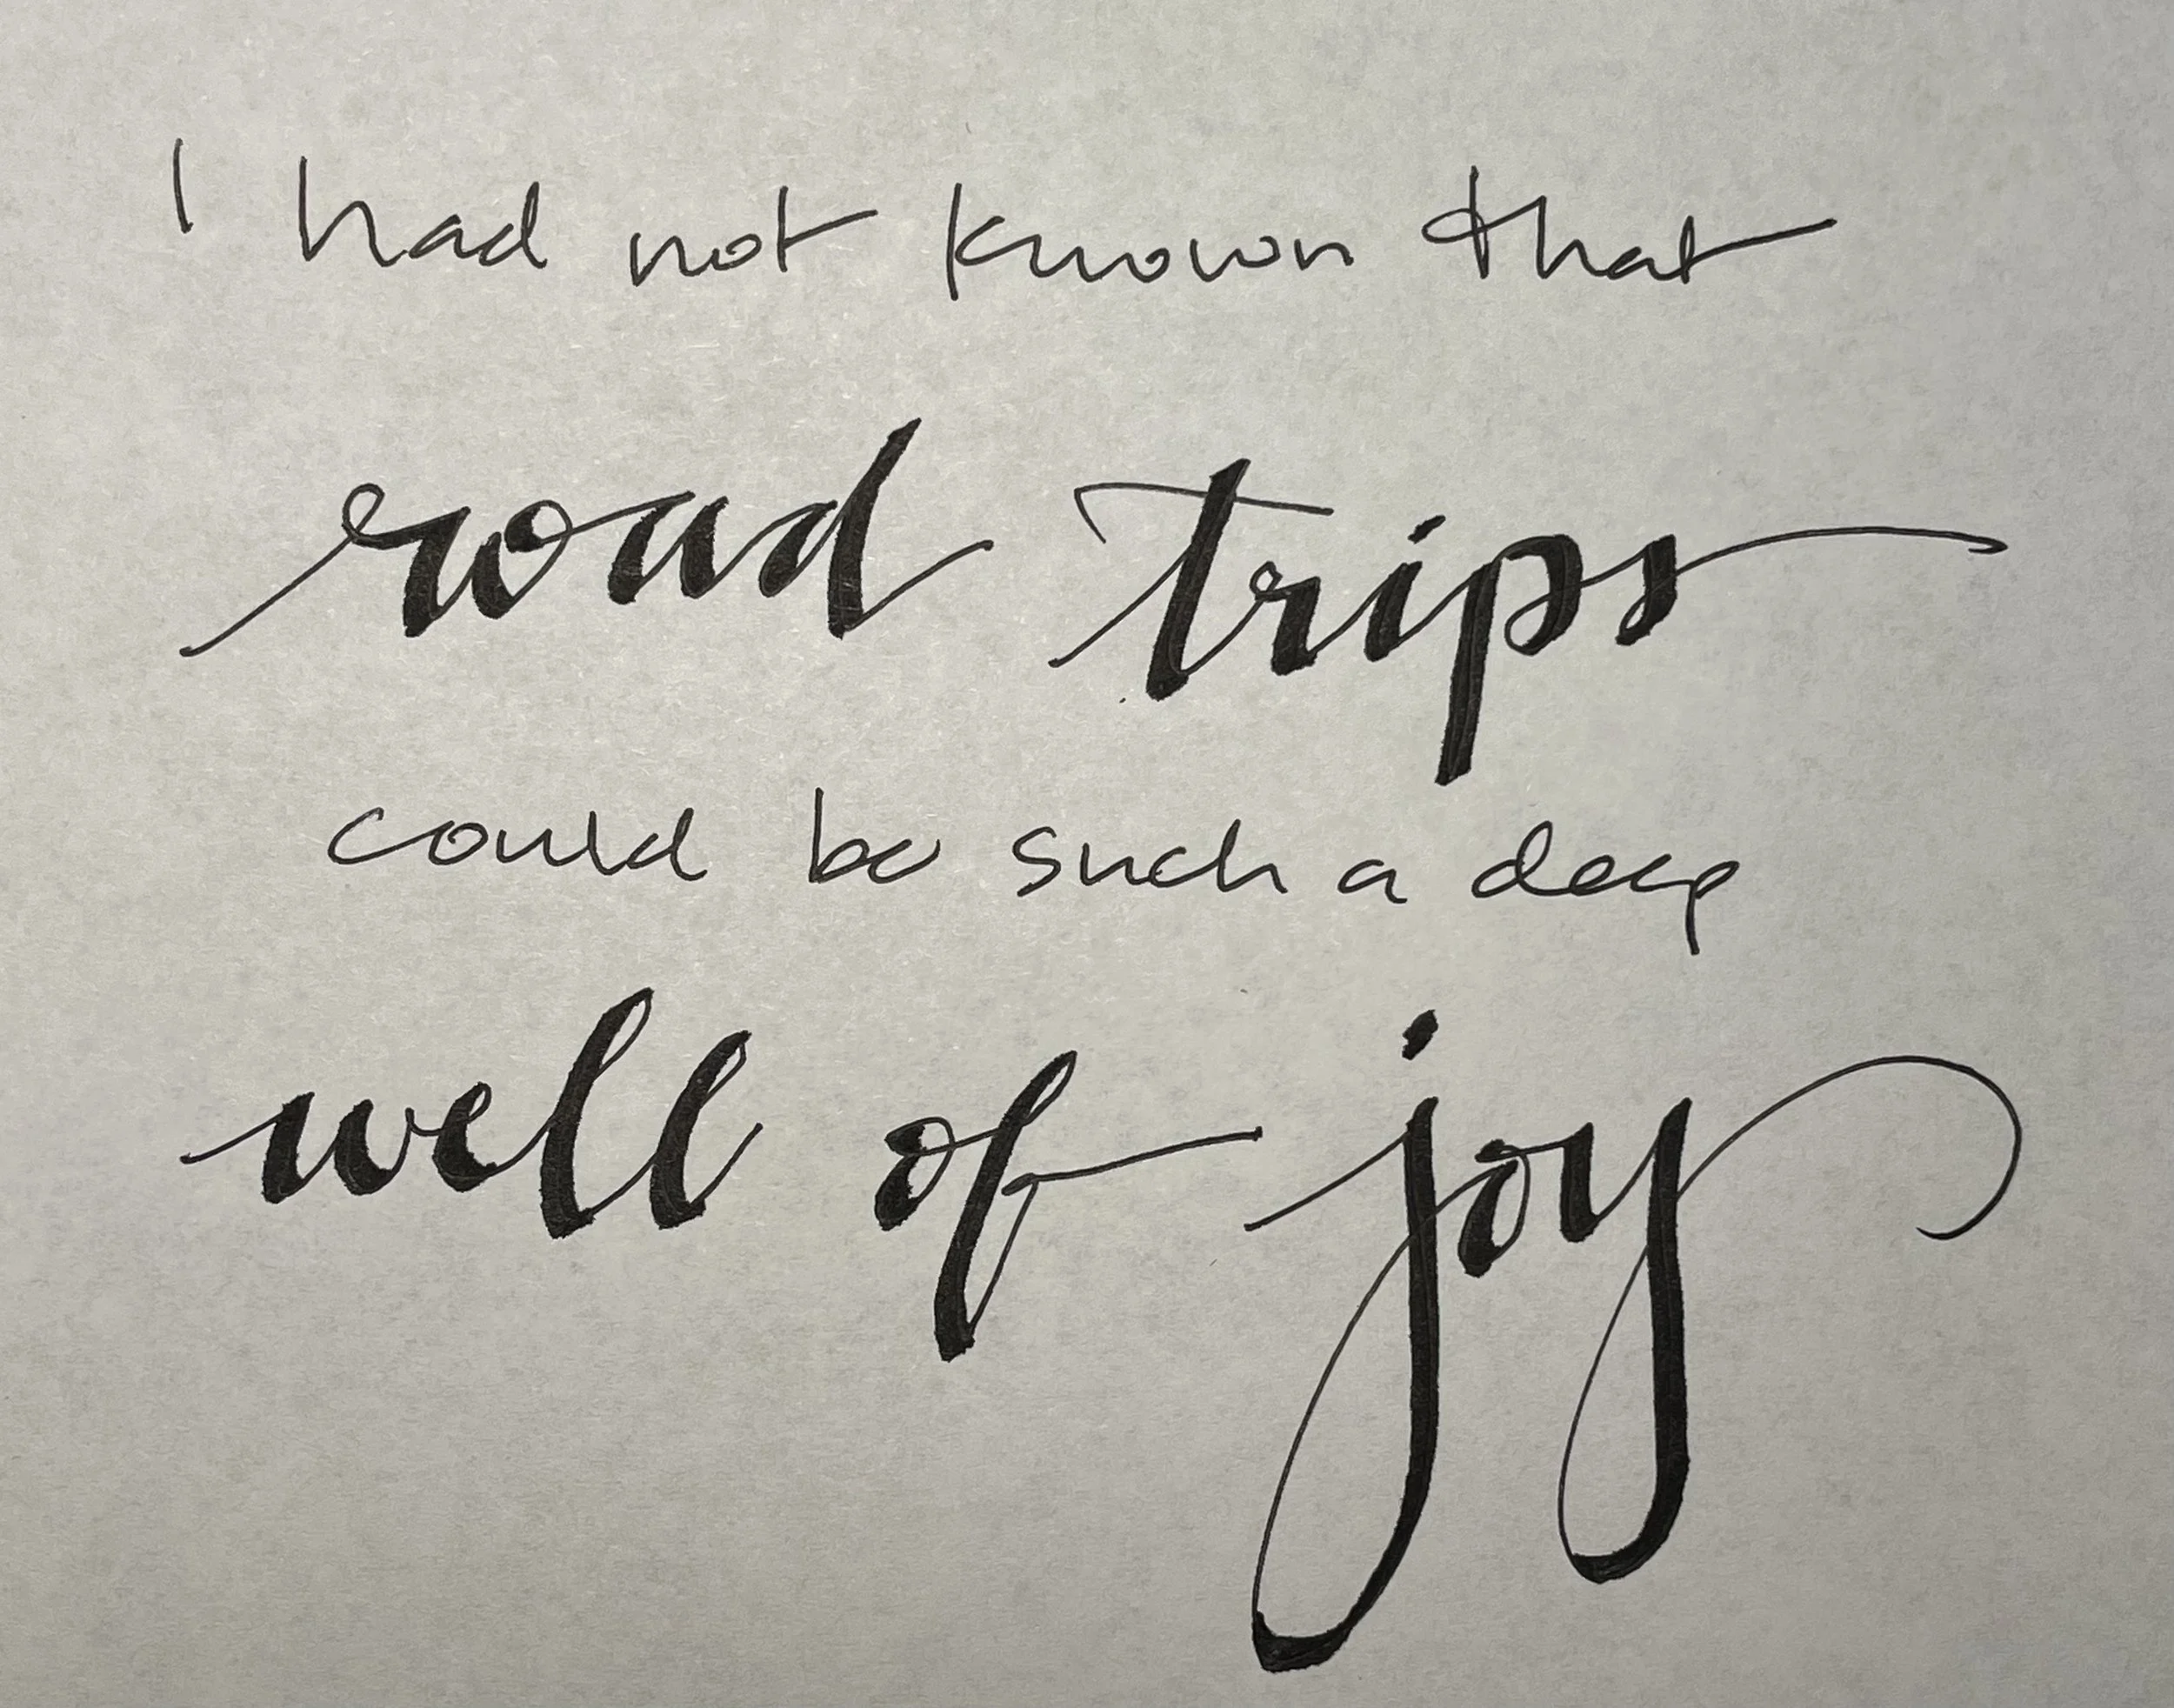 I had not known that
road trips
could be such a deep
well of joy